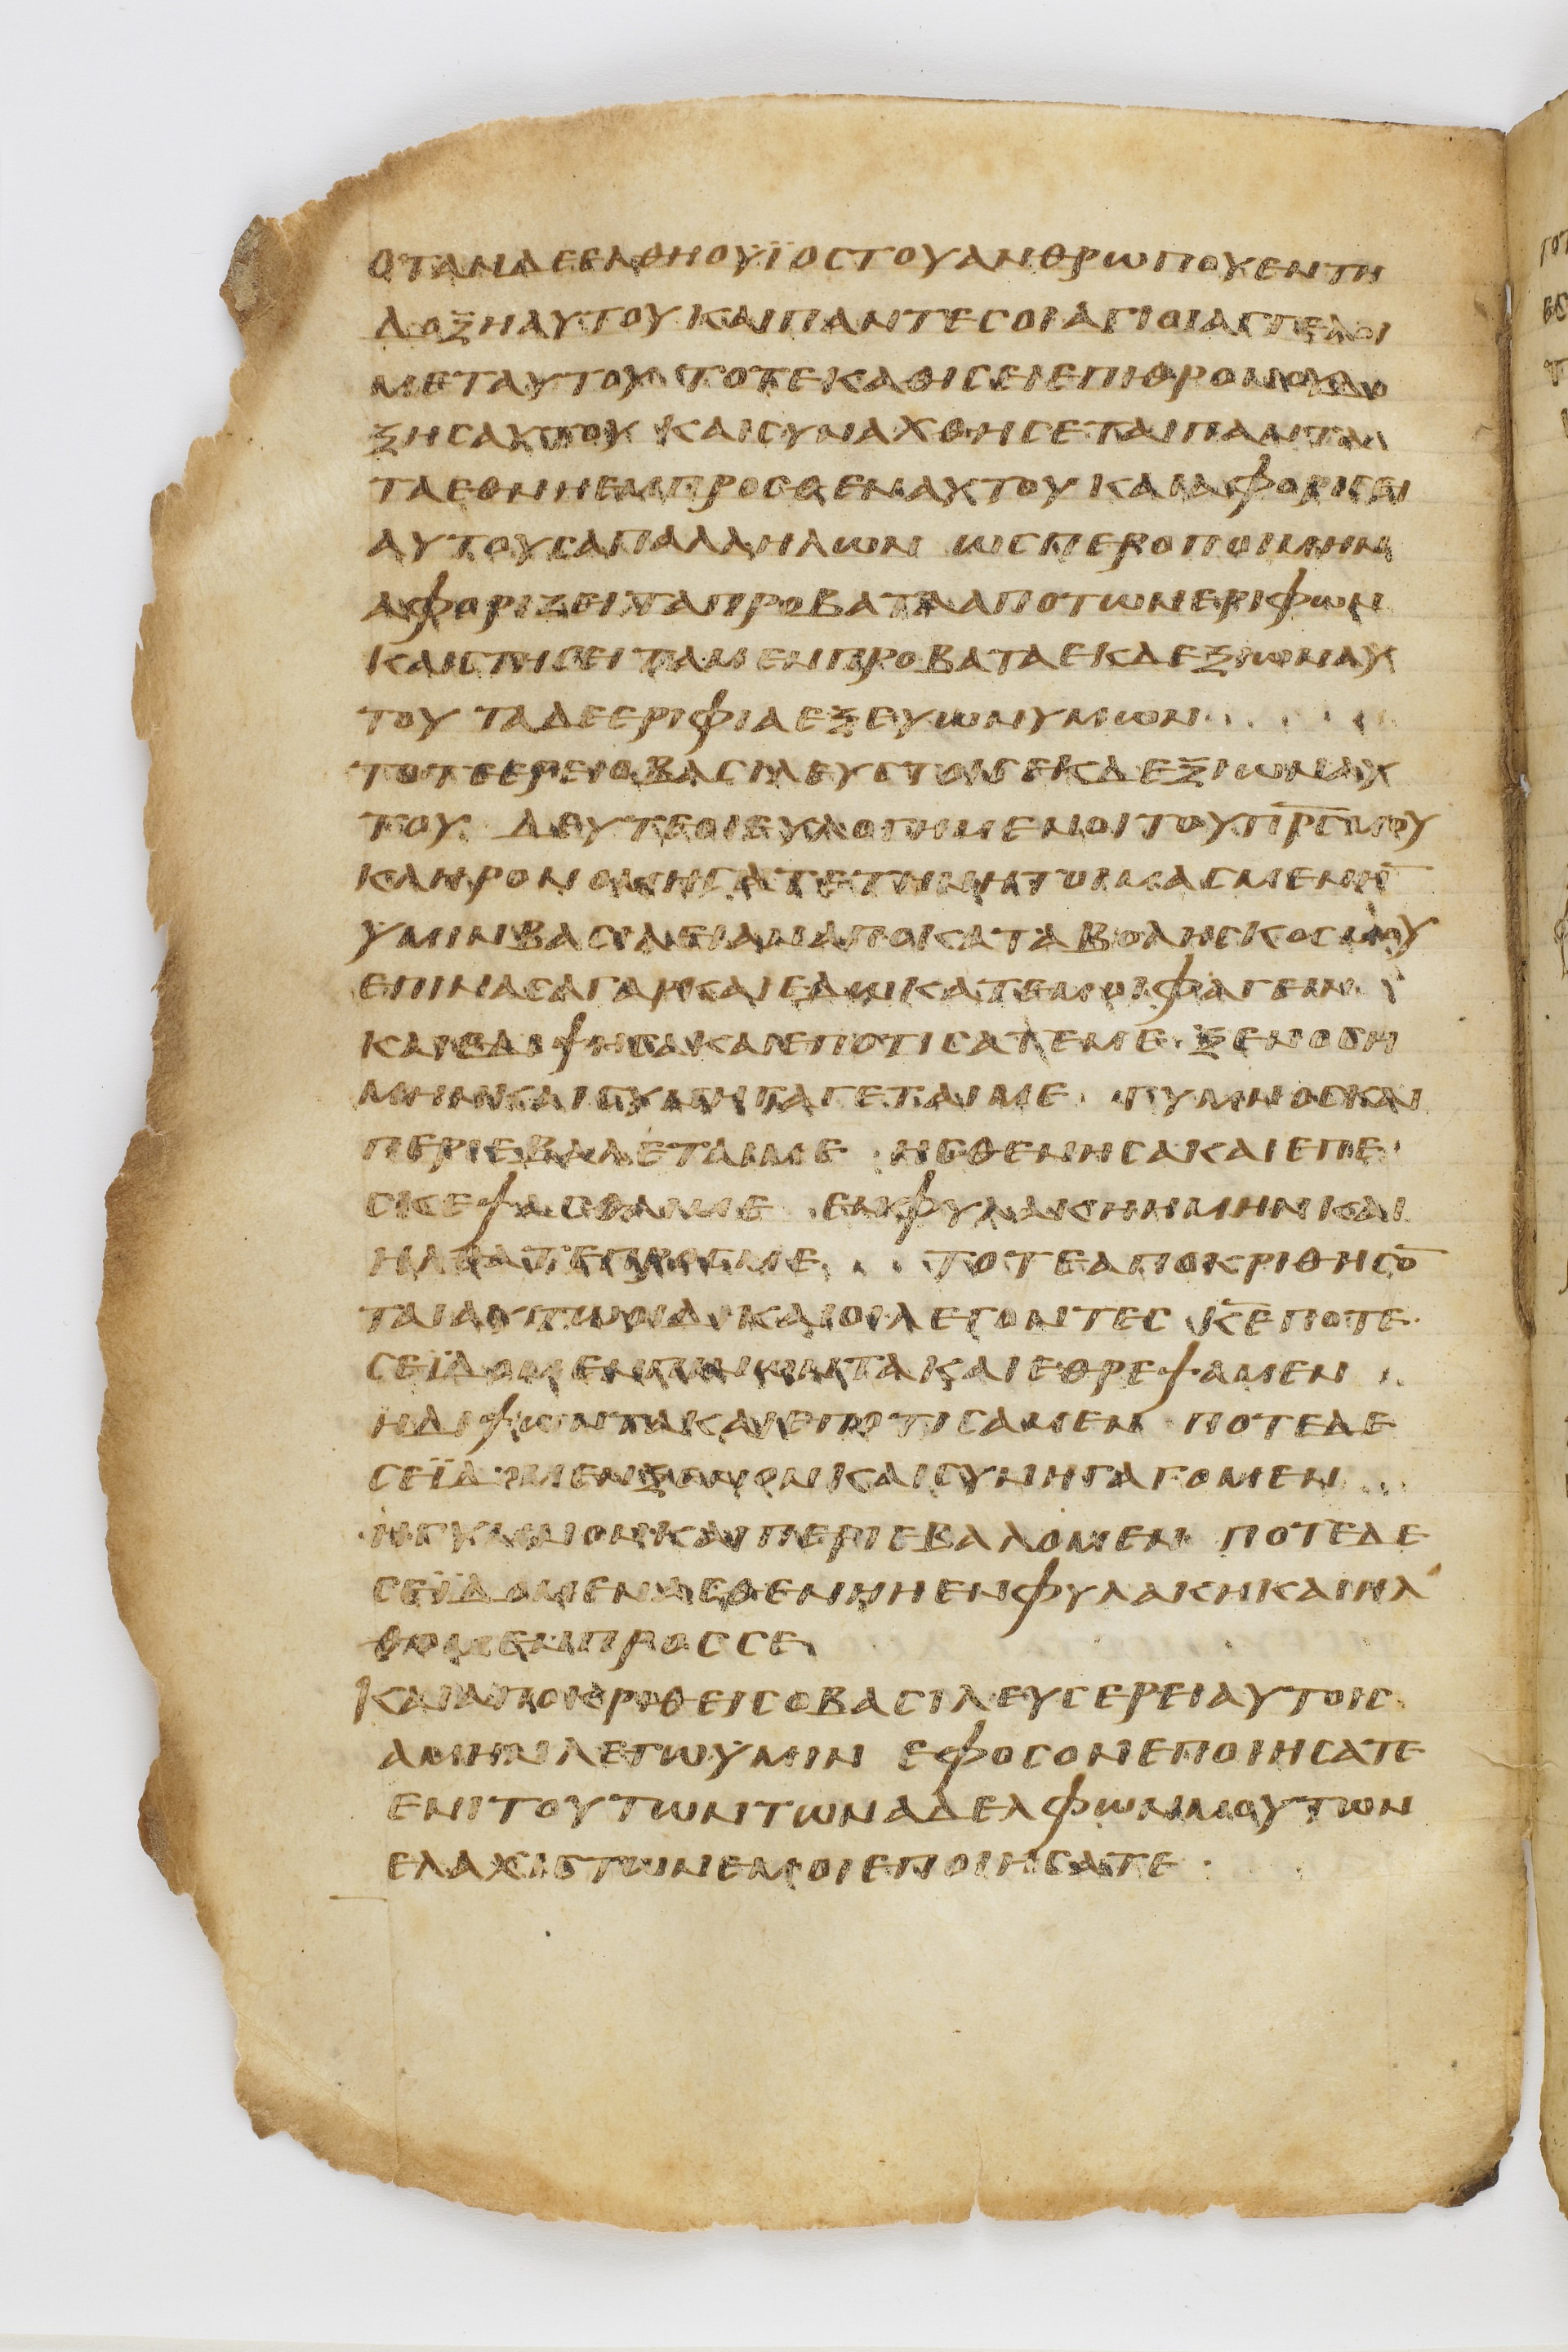 ΟΤΑΝΔΕΕΛΘΗΟΥΪΟCΤΟΥΑΝΘΡΩΠΟΥΕΝΤΗ
ΔΟΞΗΑΥΤΟΥ ΚΑΙΠΑΝΤΕCΟΙΑΓΙΟΙΑΓΓΕΛΟΙ
ΜΕΤΑΥΤΟΥ ΤΟΤΕΚΑΘΙCΕΙΕΠΙΘΡΟΝΟΥΔΟ
ΞΗCΑΥΤΟΥ ΚΑΙCΥΝΑΧΘΗCΕΤΑΙΠΑΝΤΑ
ΤΑΕΘΝΗΕΜΠΡΟCΘΕΝΑΥΤΟΥ ΚΑΙΑΦΟΡΙΕΙ
ΑΥΤΟΥCΑΠΑΛΛΗΛΩΝ ΩCΠΕΡΟΠΟΙΜΗΝ
ΑΦΟΡΙΖΕΙΤΑΠΡΟΒΑΤΑΑΠΟΤΩΝΕΡΙΦΩΝ
ΚΑΙCΤΗCΕΙΤΑΜΕΝΠΡΟΒΑΤΑΕΚΔΕΞΙΩΝΑΥ
ΤΟΥ ΤΑΔΕΕΡΙΦΙΑΕΞΕΥΩΝΥΜΩΝ
ΤΟΤΕΕΡΕΙΟΒΑCΙΛΕΥCΤΟΙCΕΚΔΕΞΙΩΝΑΥ
ΤΟΥ ΔΕΥΤΕΟΙΕΥΛΟΓΗΜΕΝΟΙΤΟΥΠΡCΜΟΥ
ΚΛΗΡΟΝΟΜΗCΑΤΕΤΗΝΗΤΟΙΜΑCΜΕΝΗ̅
ΥΜΙΝΒΑCΙΛΕΙΑΝΑΠΟΚΑΤΑΒΟΛΗCΚΟCΜΟΥ
ΕΠΙΝΑCΑΓΑΡΚΑΙΕΔΩΚΑΤΕΜΟΙΦΑΓΕΙΝ
ΚΑΙΕΔΙΨΗCΑΚΑΙΕΠΟΤΙCΑΤΕΜΕ ΞΕΝΟCΗ
ΜΗΝΚΑΙCΥΝΗΓΑΓΕΤΑΙΜΕ ΓΥΜΝΟCΚΑΙ
ΠΕΡΙΕΒΑΛΕΤΑΙΜΕ ΗCΘΕΝΗCΑΚΑΙΕΠΕ
CΚΕΨΑCΘΑΙΜΕ ΕΝΦΥΛΑΚΗΗΜΗΝΚΑΙ
ΗΛΘΑΤΕΠΡΟCΜΕ ΤΟΤΕΑΠΟΚΡΙΘΗCΟ̅
ΤΑΙΑΥΤΩΟΙΔΙΚΑΙΟΙΛΕΓΟΝΤΕC Κ̅Ε̅ΠΟΤΕ
CΕΪΔΟΜΕΝΠΙΝΩΝΤΑΚΑΙΕΘΡΕΨΑΜΕΝ
ΗΔΙΨΩΝΤΑΚΑΙΕΠΟΤΙCΑΜΕΝ ΠΟΤΕΔΕ
CΕΪΔΟΜΕΝΞΕΝΟΝΚΑΙCΥΝΗΓΑΓΟΜΕΝ
ΗΓΥΜΝΟΝΚΑΙΠΕΡΙΕΒΑΛΟΜΕΝ ΠΟΤΕΔΕ
CΕΪΔΟΜΕΝΑCΘΕΝΗΗΕΝΦΥΛΑΚΗΚΑΙΗΛ
ΘΟΜΕΝΠΡΟCCΕ
ΚΑΙΑΠΟΚΡΙΘΕΙCΟΒΑCΙΛΕΥCΕΡΕΙΑΥΤΟΙC
ΑΜΗΝΛΕΓΩΥΜΙΝ ΕΦΟCΟΝΕΠΟΙΗCΑΤΕ
ΕΝΙΤΟΥΤΩΝΤΩΝΑΔΕΛΦΩΝΜΟΥΤΩΝ
ΕΛΑΧΙCΤΩΝΕΜΟΙΕΠΟΙΗCΑΤΕ